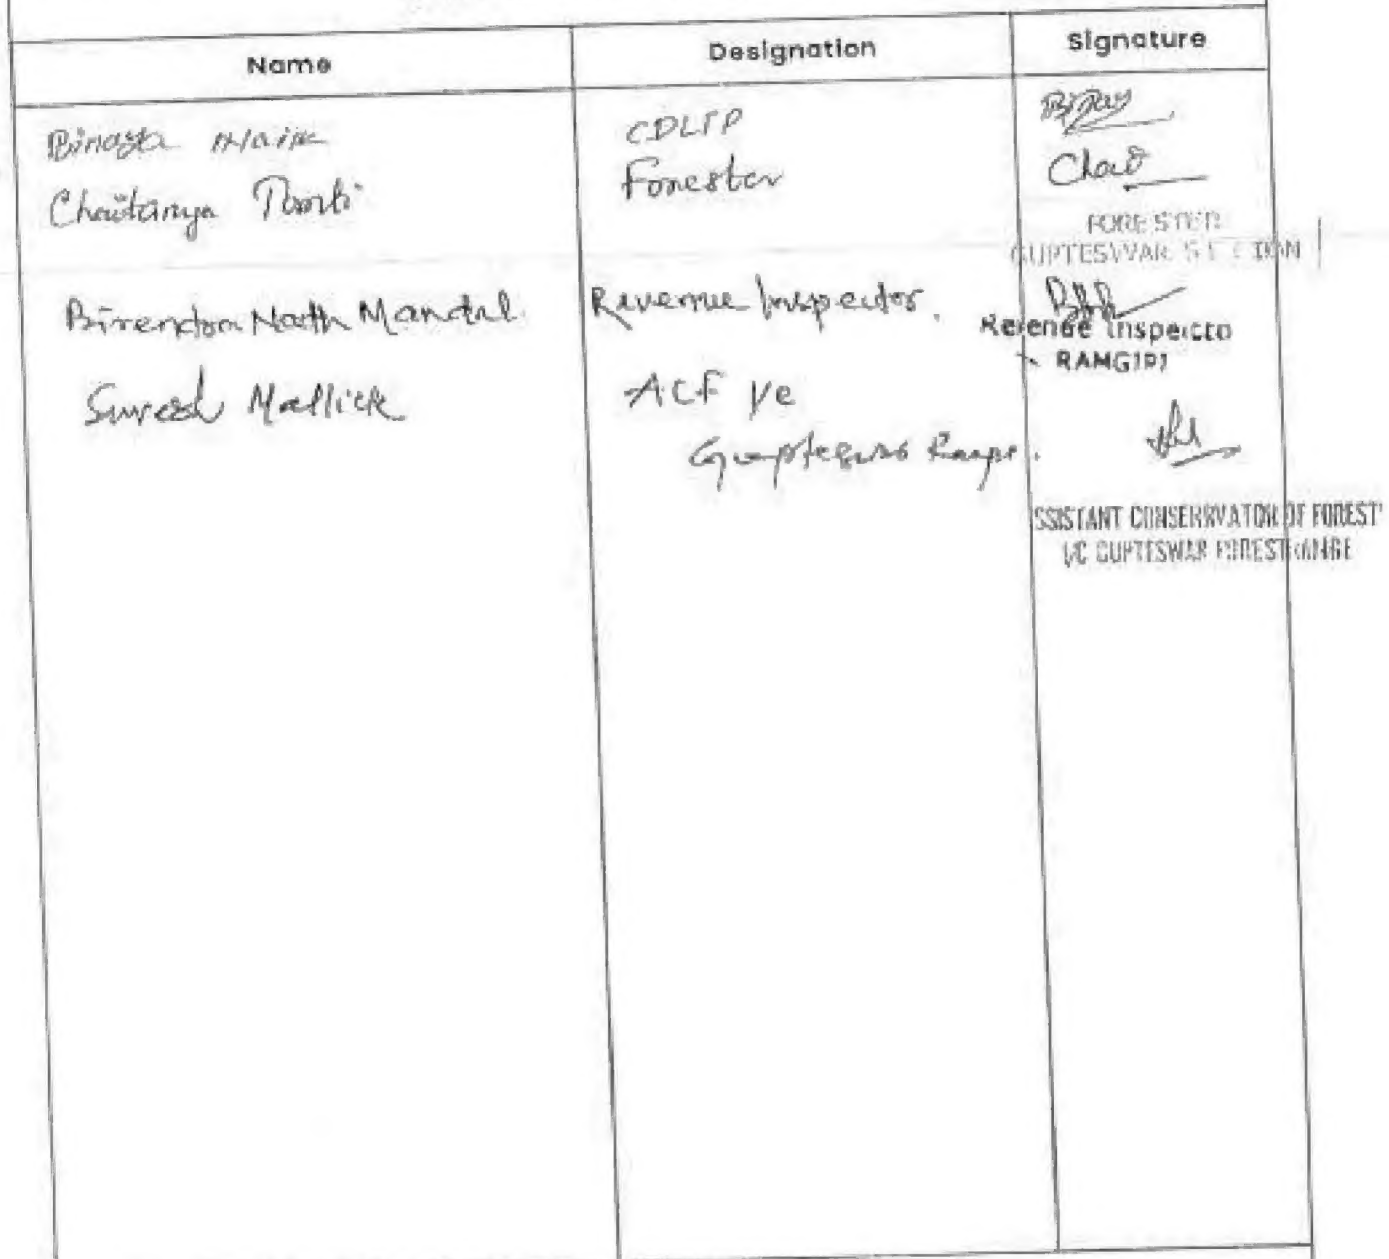 Name Designation Signature
Binaya Naik CDLPP Binay
Chaitanya Forester
FORESTER
GUPTESWAR SECTION
Birendra Nath Mandal. Revenue Inspector.
Revenue Inspecto
RAMGIRI
Suresh Mallick ACF I/c
Gupteswar Range.
SSISTANT CONSERVATOR OF FOREST
I/C GUPTESWAR FOREST RANGE